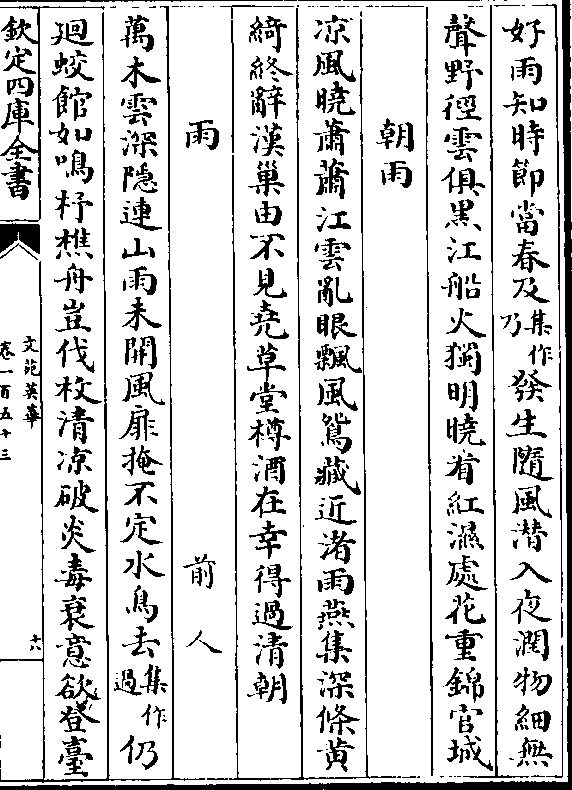 好雨知時節當春及集作乃發生隨風潜入夜潤物細無
聲野徑雲俱黑江船火獨明曉看紅濕處花重錦官城
朝雨
凉風曉蕭蕭江雲亂眼飄風鴛藏近渚雨燕集深條黄
綺終辭漢巢由不見堯草堂樽酒在幸得過清朝
雨 前人
萬木雲深隱連山雨未開風扉掩不定水鳥去集作過仍
廻蛟館如鳴杼樵舟豈伐枚清凉破炎毒衰意欲登臺
欽定四庫全書
文苑英華
卷一百五十三
十六